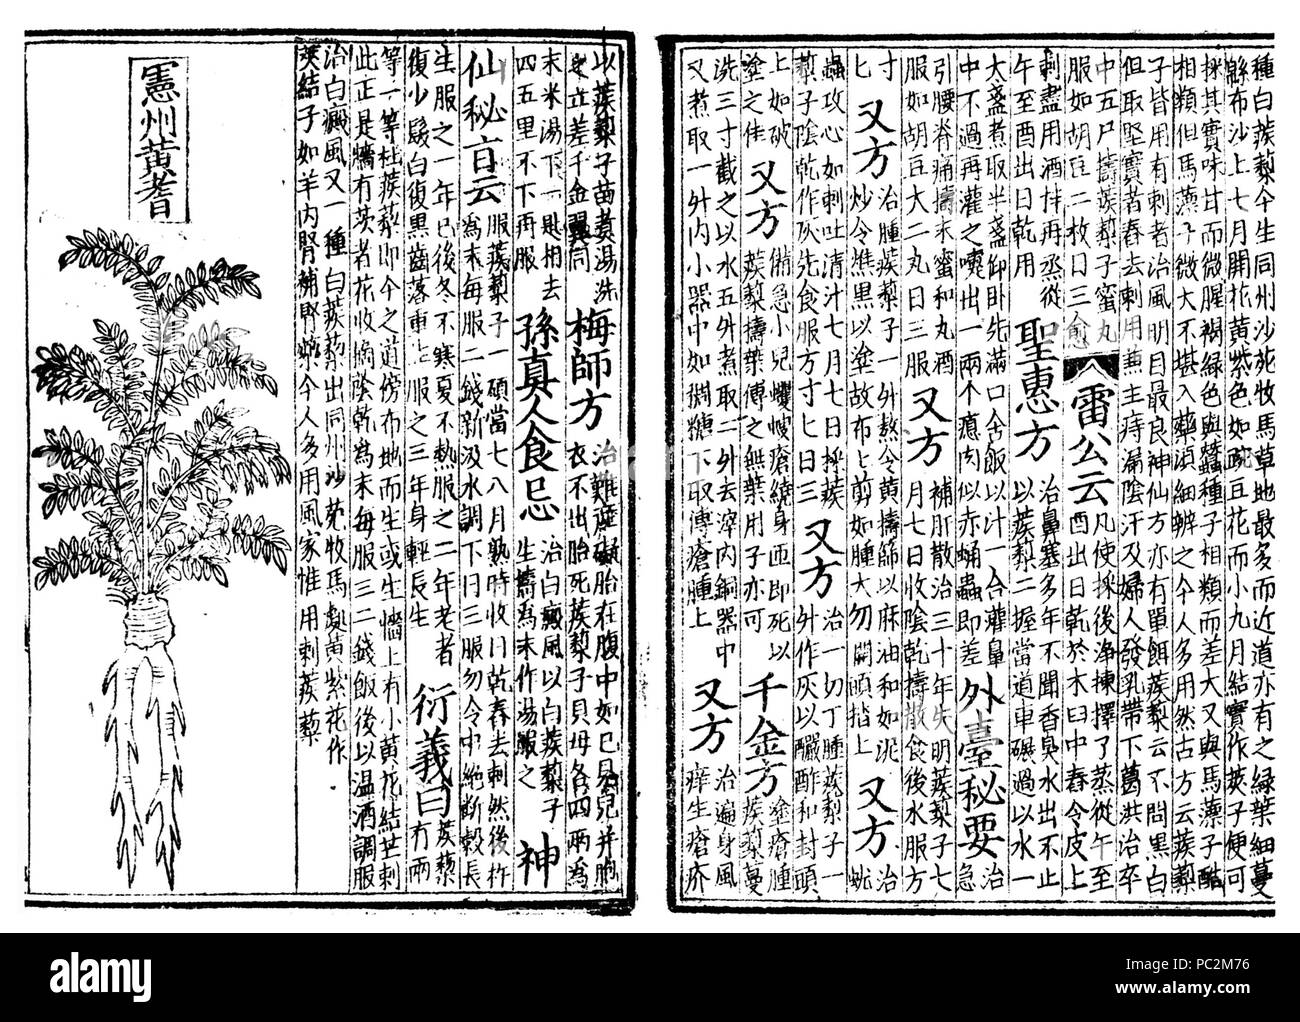 種白蒺藜今生同州沙苑牧馬草地最多而近道亦有之綠葉細蔓
緜布沙上七月開花黃紫色如豌豆花而小九月結實作莢子便可
採其實味甘而微腥褐綠色與蠶種子相類而差大又與馬薸子酷
相類但馬薸子微大不堪入藥須細辨之今人多用然古方云蒺藜
子皆用有刺者治風明目最良神仙方亦有單餌蒺藜云不問黑白
但取堅實者舂去刺用兼主痔漏陰汗及婦人發乳帶下葛洪治卒
中五尸擣蒺藜子蜜丸
服如胡豆二枚日三愈
雷公云
凡使採後淨揀擇了蒸從午至
酉出日乾於木臼中舂令皮上
刺盡用酒拌再蒸從
午至酉出日乾用
聖惠方
治鼻塞多年不聞香臭水出不止
以蒺藜二握當道車碾過以水一
大盞煮取半盞仰臥先滿口含飯以汁一合灌鼻
中不過再灌之嚏出一兩个瘜肉似赤蛹蟲即差
外臺秘要
治
急
引腰脊痛擣末蜜和丸酒
服如胡豆大二丸日三服
又方
補肝散治三十年失明蒺藜子七
月七日收陰乾擣散食後水服方
寸
匕
又方
治腫蒺藜子一升熬令黃擣篩以麻油和如泥
炒令燋黑以塗故布上剪如腫大勿開頭搨上
又方
治
蚘
蟲攻心如刺吐清汁七月七日採蒺
藜子陰乾作灰先食服方寸匕日三
又方
治一切丁腫蒺藜子一
升作灰以釅酢和封頭
上如破
塗之佳
又方
備急小兒蠼螋瘡繞身匝即死以
蒺藜擣葉傅之無葉用子亦可
千金方
塗瘡腫
蒺藜蔓
洗三寸截之以水五升煮取二升去滓內銅器中
又煮取一升內小器中如稠糖下取傅瘡腫上
又方
治遍身風
痒生瘡疥
以蒺藜子苗煮湯洗
之立差千金翼同
梅師方
治難產礙胎在腹中如已見兒并胞
衣不出胎死蒺藜子貝母各四兩為
末米湯下一匙相去
四五里不下再服
孫真人食忌
治白癜風以白蒺藜子
生擣為末作湯服之
神
仙秘旨云
服蒺藜子一碩當七八月熟時收日乾舂去刺然後杵
為末每服二錢新汲水調下日三服勿令中絶斷穀長
生服之一年已後冬不寒夏不熱服之二年老者
復少髮白復黑齒落重生服之三年身輕長生
衍義曰
蒺藜
有兩
等一等杜蒺藜即今之道傍布地而生或生牆上有小黃花結芒刺
此正是牆有茨者花收摘陰乾為末每服三二錢飯後以温酒調服
治白癜風又一種白蒺藜出同州沙苑牧馬處黃紫花作
莢結子如羊內腎補腎藥今人多用風家惟用刺蒺藜
憲州黃耆
alamy
Image ID: PC2M76
www.alamy.com